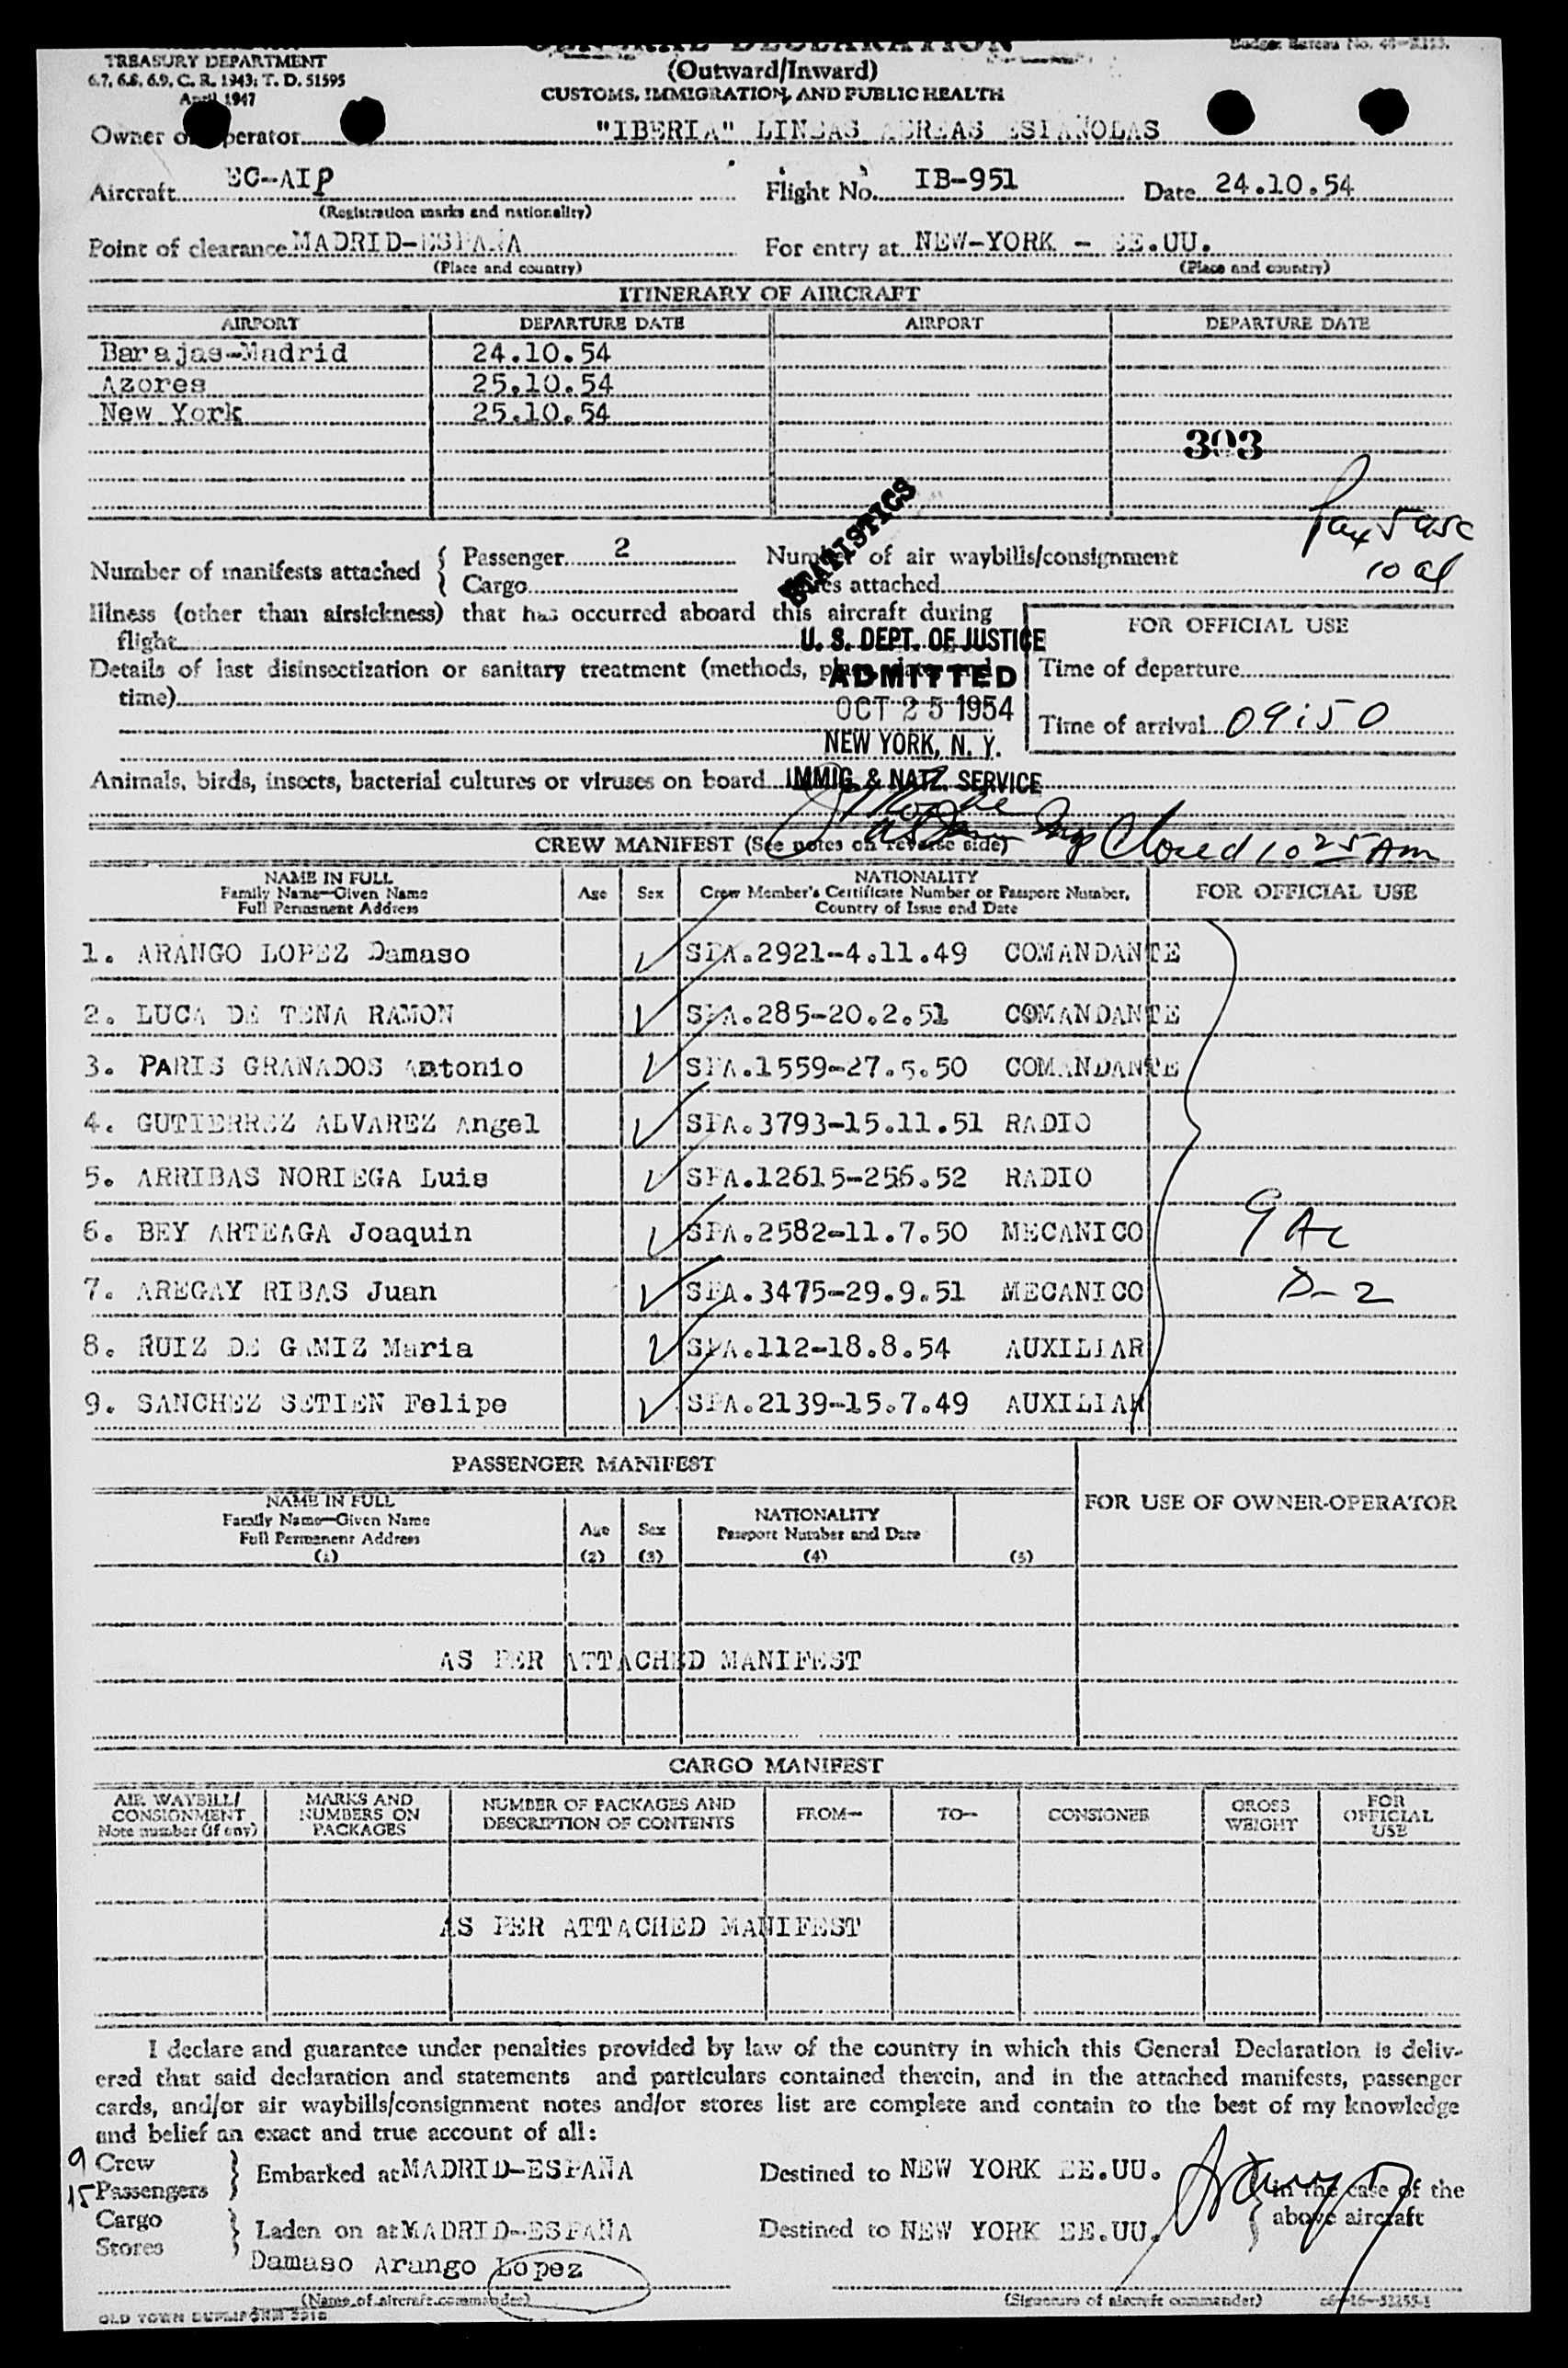 TREASURY DEPARTMENT
6.7, 6.8, 6.9, C. R. 1943; T. D. 51595
April 1947
GENERAL DECLARATION
(Outward/Inward)
CUSTOMS, IMMIGRATION, AND PUBLIC HEALTH
Budget Bureau No.
Owner or operator "IBERIA" LINEAS AEREAS ESPAÑOLAS
Aircraft EC-AIP Flight No. IB-951 Date 24.10.54
(Registration marks and nationality)
Point of clearance MADRID-ESPAÑA For entry at NEW-YORK - EE.UU.
(Place and country) (Place and country)
ITINERARY OF AIRCRAFT
AIRPORT DEPARTURE DATE AIRPORT DEPARTURE DATE
Barajas-Madrid 24.10.54
Azores 25.10.54
New York 25.10.54
303
STATISTICS
Pax 5 usc
10 al
Number of manifests attached { Passenger 2 Number of air waybills/consignment
Cargo notes attached
Illness (other than airsickness) that has occurred aboard this aircraft during
flight
U. S. DEPT. OF JUSTICE
FOR OFFICIAL USE
Details of last disinsectization or sanitary treatment (methods, place, date, and
time)
ADMITTED
Time of departure
OCT 25 1954
Time of arrival 09:50
NEW YORK, N. Y.
Animals, birds, insects, bacterial cultures or viruses on board
IMMIG. & NATZ. SERVICE
Closed 10 25 Am
CREW MANIFEST (See notes on reverse side)
NAME IN FULL
Family Name—Given Name
Full Permanent Address
Age Sex
NATIONALITY
Crew Member's Certificate Number or Passport Number,
Country of Issue and Date
FOR OFFICIAL USE
1. ARANGO LOPEZ Damaso SPA.2921-4.11.49 COMANDANTE
2. LUCA DE TENA RAMON SPA.285-20.2.51 COMANDANTE
3. PARIS GRANADOS Antonio SPA.1559-27.5.50 COMANDANTE
4. GUTIERREZ ALVAREZ Angel SPA.3793-15.11.51 RADIO
5. ARRIBAS NORIEGA Luis SPA.12615-256.52 RADIO
6. BEY ARTEAGA Joaquin SPA.2582-11.7.50 MECANICO 9 Ac
7. AREGAY RIBAS Juan SPA.3475-29.9.51 MECANICO D-2
8. RUIZ DE GAMIZ Maria SPA.112-18.8.54 AUXILIAR
9. SANCHEZ SETIEN Felipe SPA.2139-15.7.49 AUXILIAR
PASSENGER MANIFEST
NAME IN FULL
Family Name—Given Name
Full Permanent Address
(1)
Age
(2)
Sex
(3)
NATIONALITY
Passport Number and Date
(4)
(5)
FOR USE OF OWNER-OPERATOR
AS PER ATTACHED MANIFEST
CARGO MANIFEST
AIR WAYBILL/
CONSIGNMENT
Note number (if any)
MARKS AND
NUMBERS ON
PACKAGES
NUMBER OF PACKAGES AND
DESCRIPTION OF CONTENTS
FROM—
TO—
CONSIGNEE
GROSS
WEIGHT
FOR
OFFICIAL
USE
AS PER ATTACHED MANIFEST
I declare and guarantee under penalties provided by law of the country in which this General Declaration is deliv-
ered that said declaration and statements and particulars contained therein, and in the attached manifests, passenger
cards, and/or air waybills/consignment notes and/or stores list are complete and contain to the best of my knowledge
and belief an exact and true account of all:
9 Crew
15 Passengers } Embarked at MADRID-ESPAÑA Destined to NEW YORK EE.UU. } in the case of the
above aircraft
Cargo
Stores } Laden on at MADRID-ESPAÑA Destined to NEW YORK EE.UU.
Damaso Arango Lopez
(Name of aircraft commander) (Signature of aircraft commander)
OLD TOWN